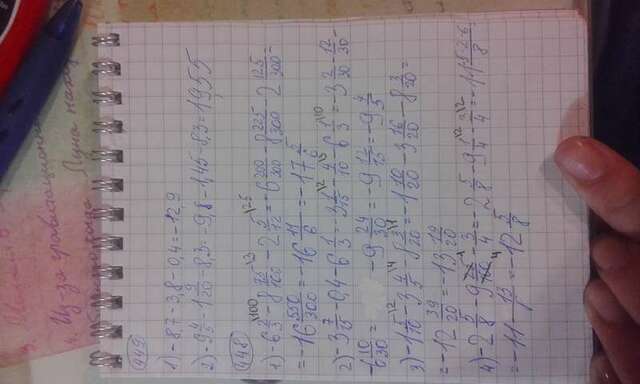 3.
4. Из-за гравитационн
Луна наход
449
1) -8,7 - 3,8 - 0,4 = -12,9
2) -9 4/5 - 1 9/20 - 8,3 = -9,8 - 1,45 - 8,3 = 19,55
448
1) -6 2/3 \100 - 8 75/100 \3 - 2 5/12 \25 = -6 200/300 - 8 225/300 2 125/300 =
= -16 550/300 = -16 11/6 = -17 5/6
2) -3 7/15 - 0,4 - 6 1/3 = -3 7/15 \2 - 4/10 - 6 1/3 \10 = -3 2/30 - 12/30 -
-6 10/30 = -9 24/30 = -9 12/15 = -9 4/5
3) -1 5/10 \2 - 3 4/5 \4 - 8 3/20 \1 = -1 10/20 - 3 16/20 - 8 3/20 =
= -12 39/20 = -13 19/20
4) -2 5/8 - 9 - 3/4 = -2 5/8 - 9 1/4 \2 - 3/4 \2 = -11 5-2-6/8 =
= -11 - 13/8 = -12 5/8